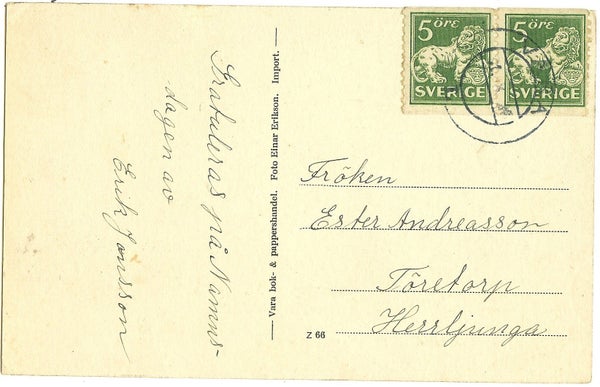 5 ÖRE
SVERIGE
5 ÖRE
SVERIGE
Gratuleras på Namns-
dagen av
Erik Jonsson
Vara bok- & pappershandel. Foto Einar Erikson. Import.
Fröken
Ester Andreasson
Töretorp
Herrljunga
Z 66